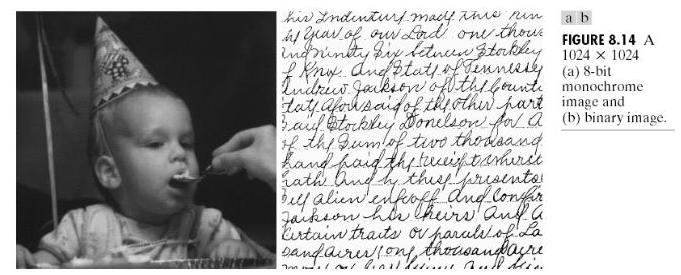 his Indenture made this nin
hf year of our Lord one thous
and ninety Six between Stockley
f Knox And State of Tennessee
Andrew Jackson of the Count
tate aforesaid of the other part
said Stockley Donelson for A
of the Sum of two thousand
hand paid the receipt wherei
hath And by these presents
ell alien enfeoff And Confir
Jackson his heirs And A
Certain traits or parcels of La
sand acres one thousand acre
a b
FIGURE 8.14 A
1024 × 1024
(a) 8-bit
monochrome
image and
(b) binary image.